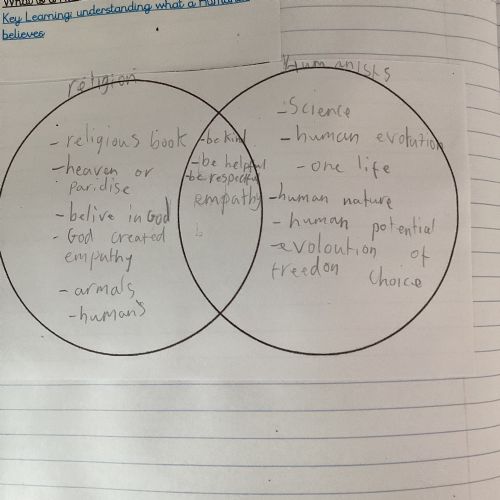 Key Learning: understanding what a Humanist
believes
religion
Humanists
- religious book
- heaven or
paridise
- belive in God
- God created
empathy
- armals
- humans
- be kind
- be helpful
- be respectful
empathy
- Science
- human evolution
- one life
- human nature
- human potential
- evoloution of
freedon choice